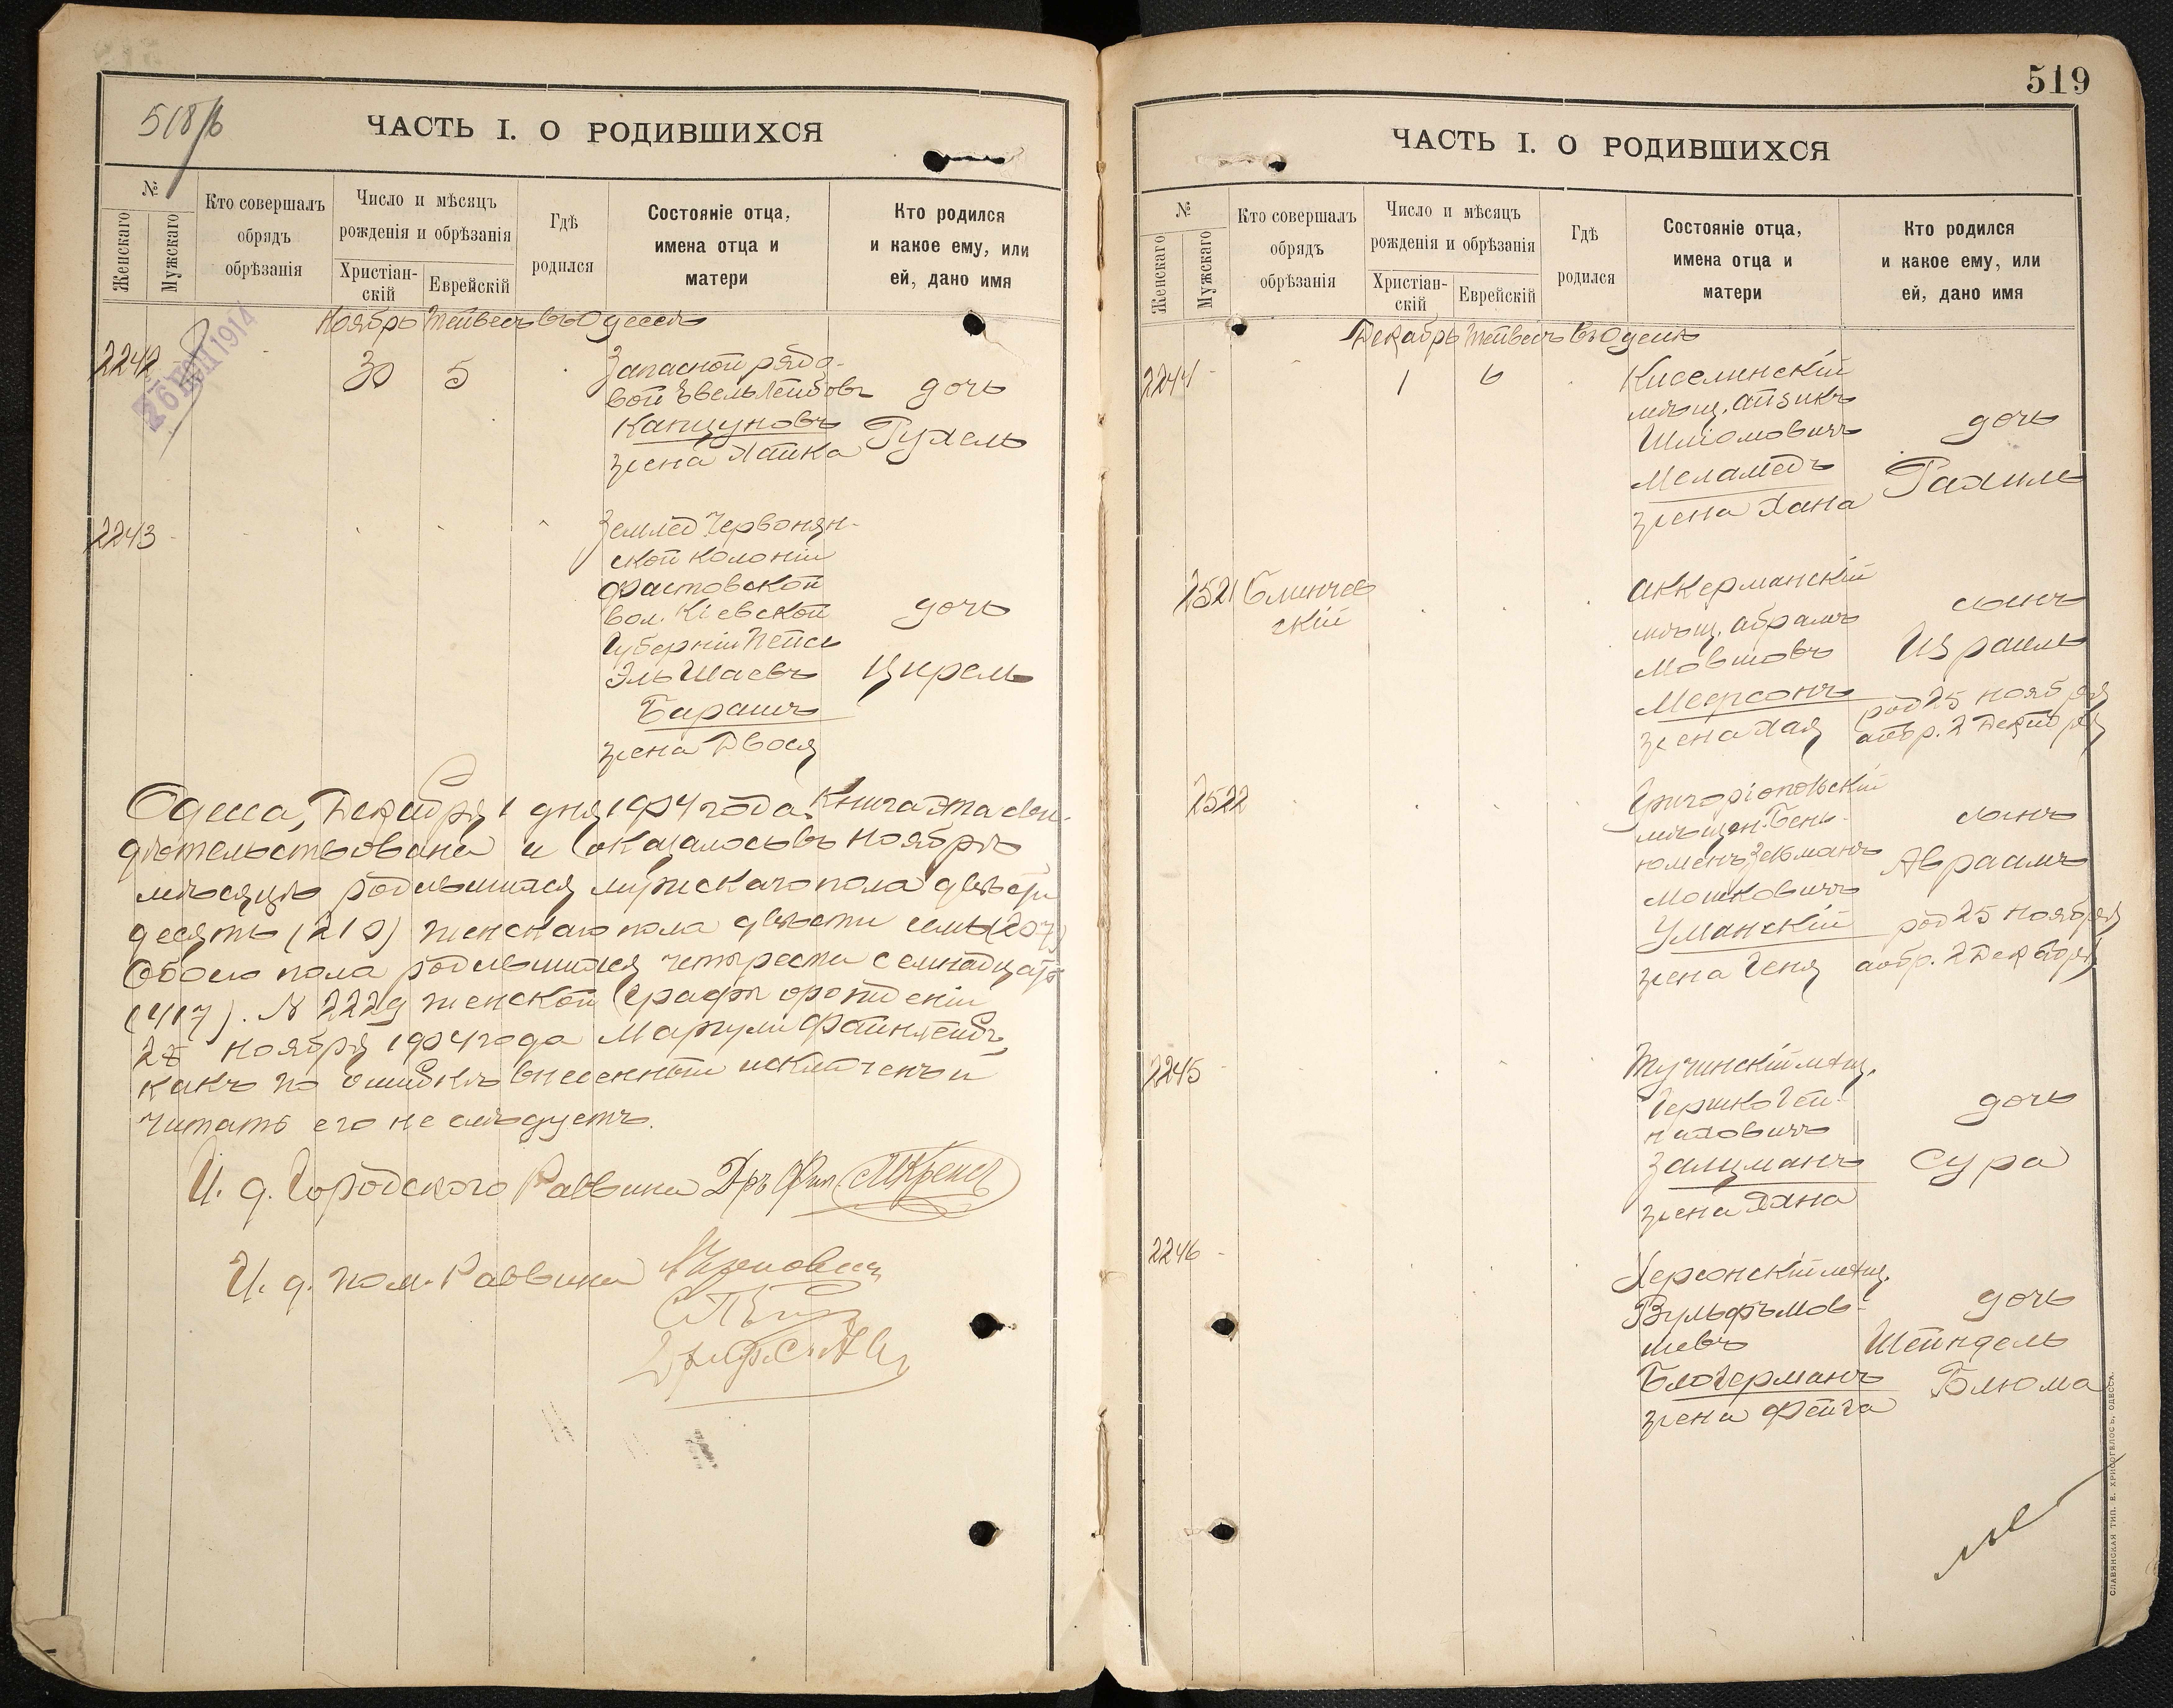 518/б
ЧАСТЬ I. О РОДИВШИХСЯ
№
Женскаго
Мужскаго
Кто совершалъ
обрядъ
обрѣзанія
Число и мѣсяцъ
рожденія и обрѣзанія
Христіан-
скій
Еврейскій
Гдѣ
родился
Состояніе отца,
имена отца и
матери
Кто родился
и какое ему, или
ей, дано имя
1914
Ноябрь Тейвесъ въ Одессѣ
2242
30
5
Запасной рядо-
вой Эвель Лейбовъ
Капцуновъ
жена Хайка
дочь
Рухель
2243
Землед. Червонян-
ской колоніи
Фастовской
вол. Кіевской
Губерніи Пейсь
Эль Шаевъ
Барашъ
жена Двося
дочь
Цирель
Одесса, Декабря 1 дня 1904 года. Книга эта сви-
дѣтельствована и оказалось въ Ноябрѣ
мѣсяцѣ родившихся мужскаго пола двѣсти
десять (210) женскаго пола двѣсти семь (207)
Обоего пола родившихся четыреста семнадцать
(417). № 2229 женской графы о рожденіи
28 Ноября 1904 года Маргули Файнлейбъ,
какъ по ошибкѣ внесенный исключенъ и
читать его не слѣдуетъ.
И. д. Городского Раввина Д-ръ Фил.
И. д. пом. Раввина
519
ЧАСТЬ I. О РОДИВШИХСЯ
№
Женскаго
Мужскаго
Кто совершалъ
обрядъ
обрѣзанія
Число и мѣсяцъ
рожденія и обрѣзанія
Христіан-
скій
Еврейскій
Гдѣ
родился
Состояніе отца,
имена отца и
матери
Кто родился
и какое ему, или
ей, дано имя
Декабрь Тейвесъ въ Одессѣ
2244
1
6
Киселинскій
мѣщ. Айзикъ
Шліомовичъ
Меламедъ
жена Хана
дочь
Рахиль
2521
Блинчев
скій
Аккерманскій
мѣщ. Абрамъ
Мовшовъ
Меерсонъ
жена Хая
сынъ
Израиль
род 25 Ноября
обр. 2 Декабря
2522
Григоріопольскій
мѣщан. Бень-
юменъ Зельманъ
Мошковичъ
Уманскій
жена Геня
сынъ
Авраамъ
род 25 Ноября
обр. 2 Декабря
2245
Тучинскій мѣщ.
Гершко
Залцманъ
жена Хана
дочь
Сура
2246
Херсонскій мѣщ.
Вульфъ Мов-
шевъ
Блогерманъ
жена Фейга
дочь
Шейндель
Блюма
СЛАВЯНСКАЯ ТИП. Е. ХРИСОГЕЛОСЪ, ОДЕССА.